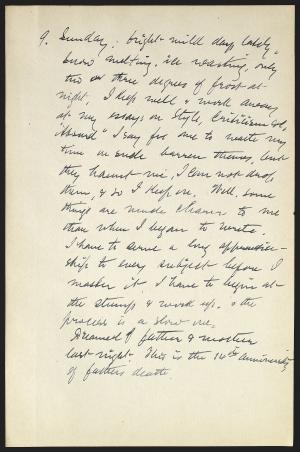 9. Sunday. bright mild day lately,
snow melting, ice wasting, only
two or three degrees of frost at
night, I keep well & work away
at my essays on Style, Criticism &c,
"Absurd" I say for me to waste my
time on such barren themes, but
they haunt me, I can not drop
them, & so I keep on. Well, some
things are made clearer to me
than when I began to write.
I have to serve a long apprentice-
ship to every subject before I
master it. I have to begin at
the stump & work up, & the
process is a slow one.
Dreamed of father & mother
last night. This is the 14th anniversity
of fathers death.